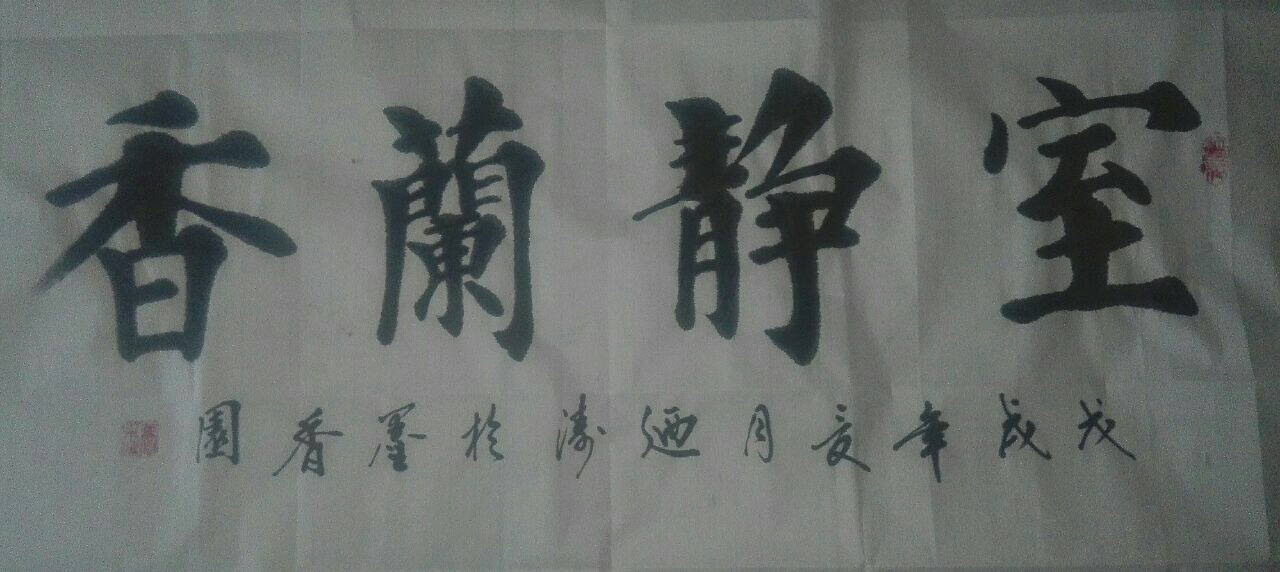 室靜蘭香
戊戌年夏月廼濤於墨香園